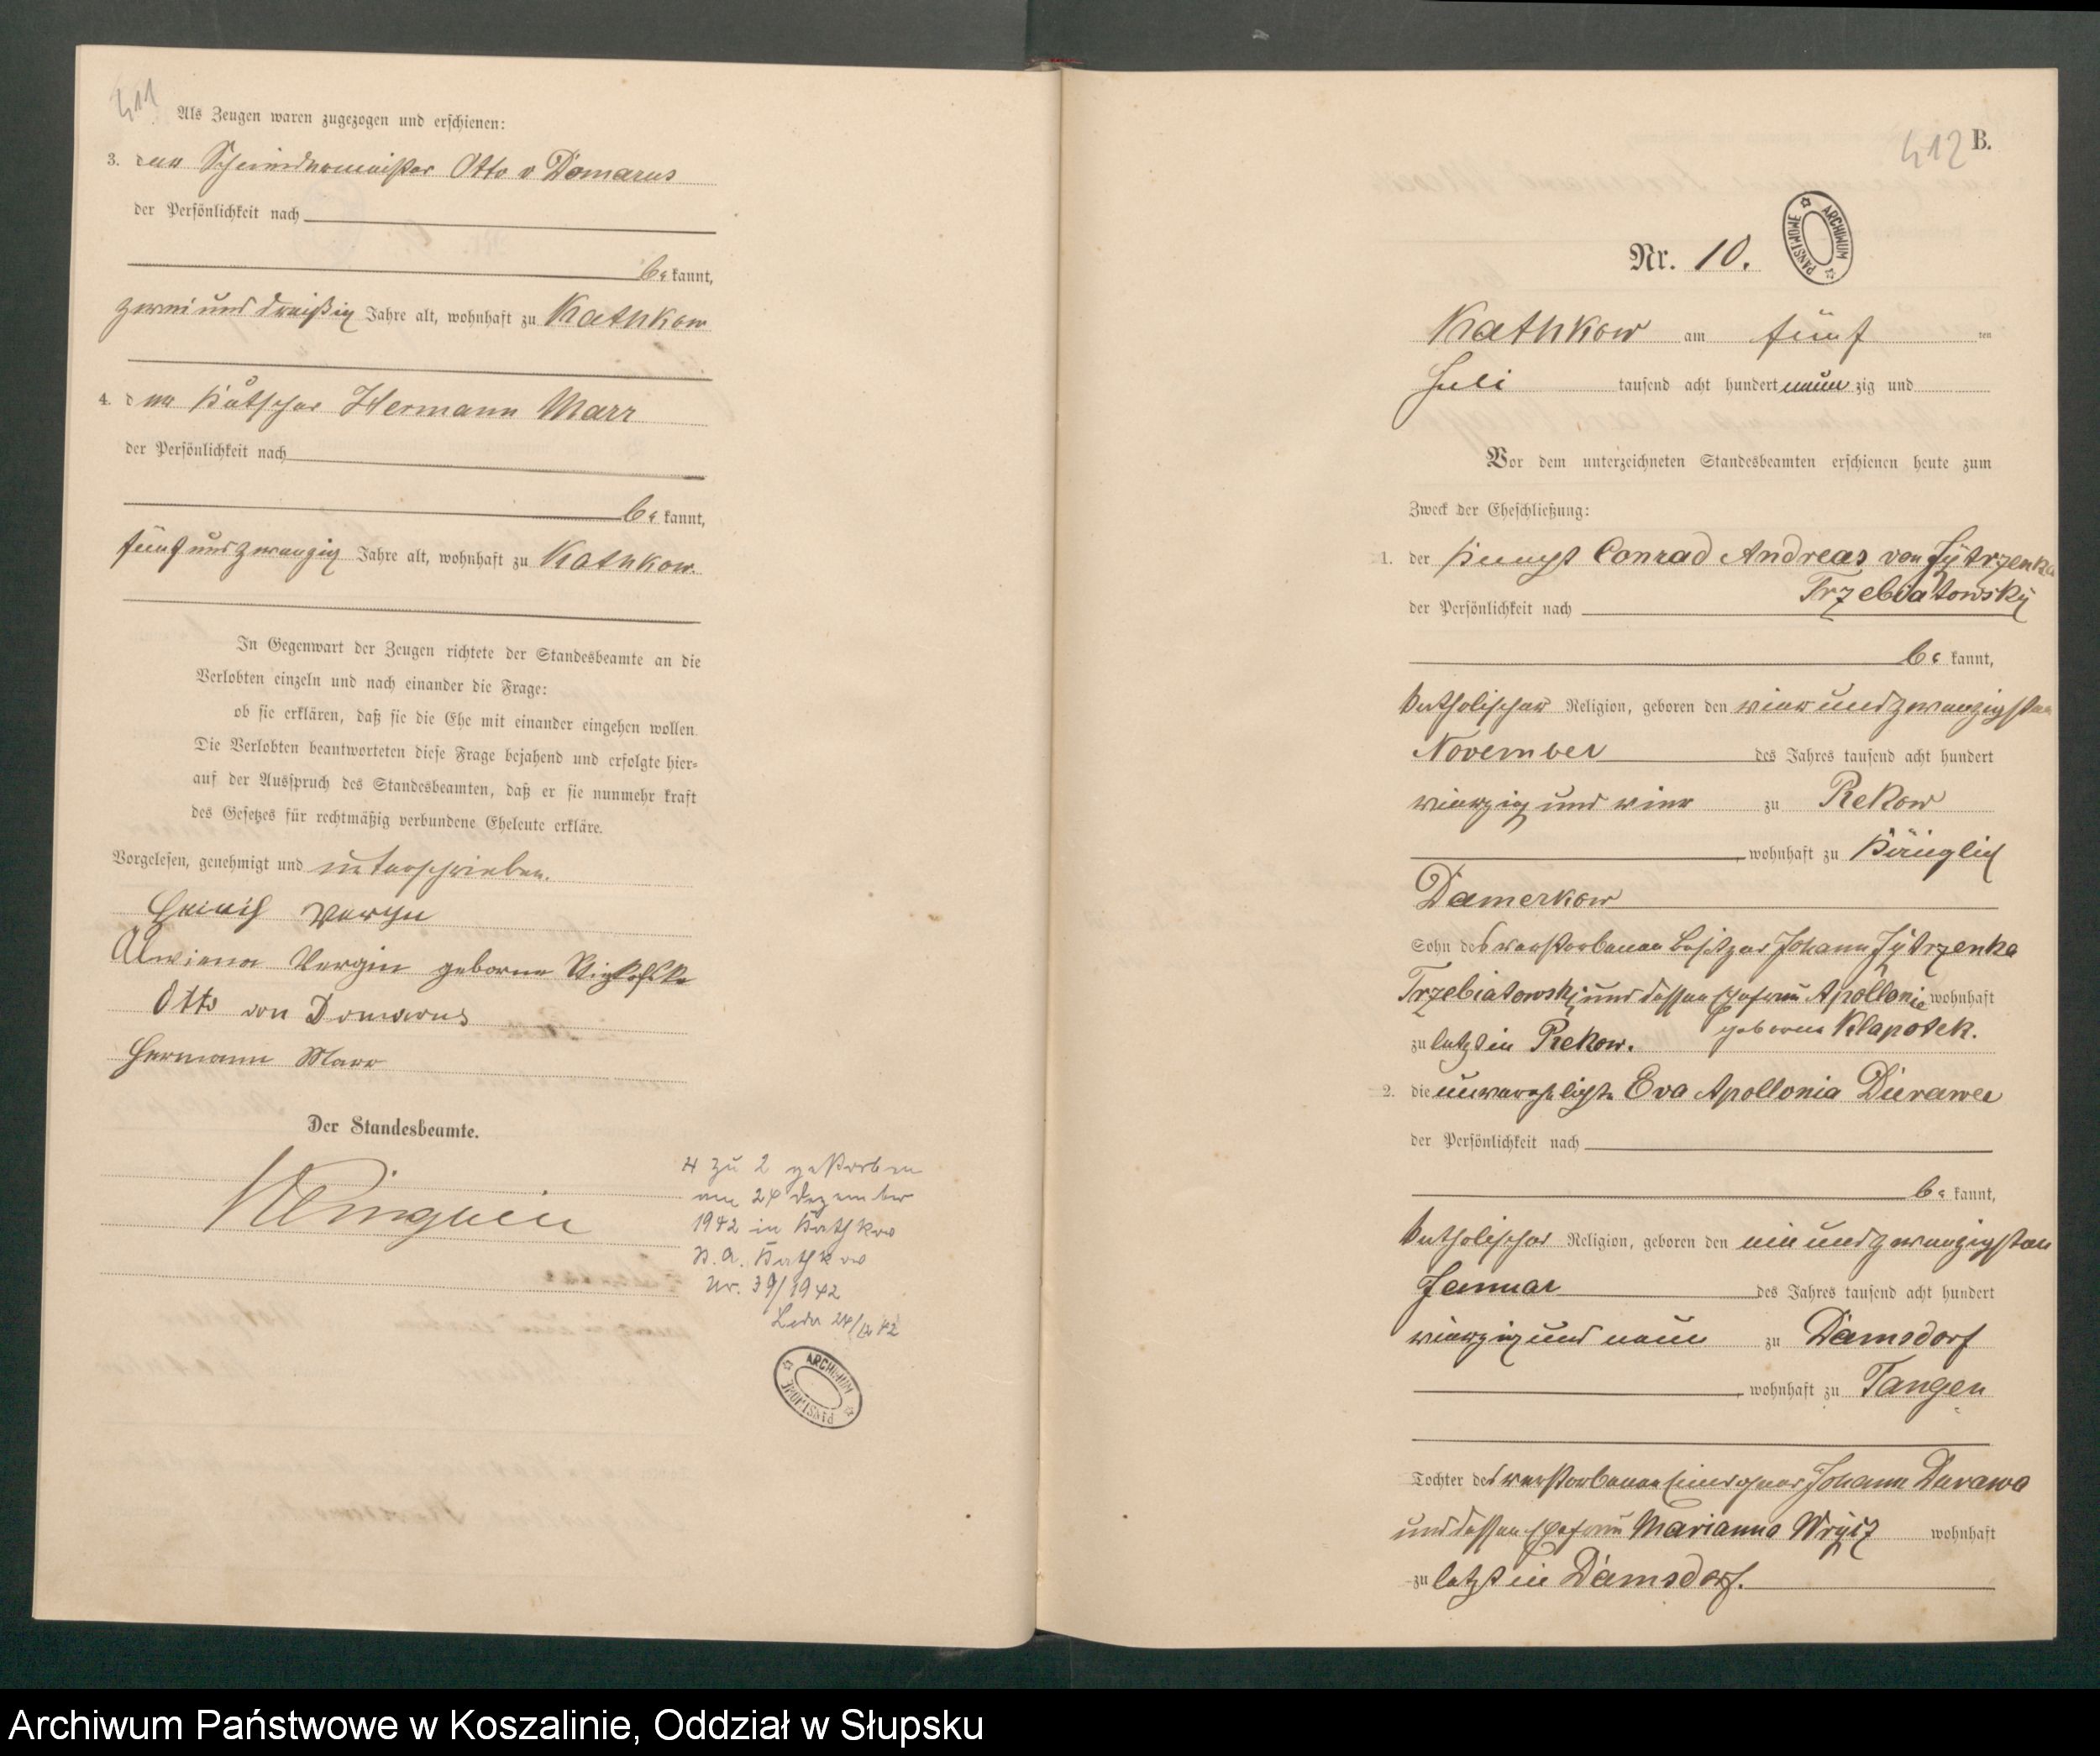 411
Als Zeugen waren zugezogen und erschienen:
3. den Schneidermeister Otto v Domarus
der Persönlichkeit nach
be kannt,
zwei und dreißig Jahre alt, wohnhaft zu Kathkow
4. den Kutscher Hermann Marr
der Persönlichkeit nach
be kannt,
fünf und zwanzig Jahre alt, wohnhaft zu Kathkow.
In Gegenwart der Zeugen richtete der Standesbeamte an die
Verlobten einzeln und nach einander die Frage:
ob sie erklären, daß sie die Ehe mit einander eingehen wollen.
Die Verlobten beantworteten diese Frage bejahend und erfolgte hier-
auf der Ausspruch des Standesbeamten, daß er sie nunmehr kraft
des Gesetzes für rechtmäßig verbundene Eheleute erkläre.
Vorgelesen, genehmigt und unterschrieben.
Vergin
Alwiena Vergin geborne
Otto von Domarus
Hermann Marr
Der Standesbeamte.
H zu 2 gestorben
am 24 Dezember
1942 in Kathkow
S.A. Kathkow
Nr. 39/1942
24/12 42
ARCHIWUM PAŃSTWOWE
412 B.
ARCHIWUM PAŃSTWOWE
Nr. 10.
Kathkow am fünf ten
Juli tausend acht hundert neun zig und
Vor dem unterzeichneten Standesbeamten erschienen heute zum
Zweck der Eheschließung:
1. der Knecht Conrad Andreas von Jÿtrzenka
Trzebiatowskÿ
der Persönlichkeit nach
be kannt,
katholischer Religion, geboren den vier und zwanzigsten
November des Jahres tausend acht hundert
vierzig und vier zu Rekow
, wohnhaft zu Königlich
Damerkow
Sohn des verstorbenen Besitzer Johann Jÿtrzenka
Trzebiatowskÿ und dessen Ehefrau Apollonie wohnhaft
geborene Klapotek.
zu letzt in Rekow.
2. die unverehelichte Eva Apollonia Durawa
der Persönlichkeit nach
be kannt,
katholischer Religion, geboren den ein und zwanzigsten
Januar des Jahres tausend acht hundert
vierzig und neun zu Damsdorf
, wohnhaft zu Tangen
Tochter des verstorbenen Einwohner Johann Durawa
und dessen Ehefrau Marianna Wrÿcz wohnhaft
zu letzt in Damsdorf.
Archiwum Państwowe w Koszalinie, Oddział w Słupsku